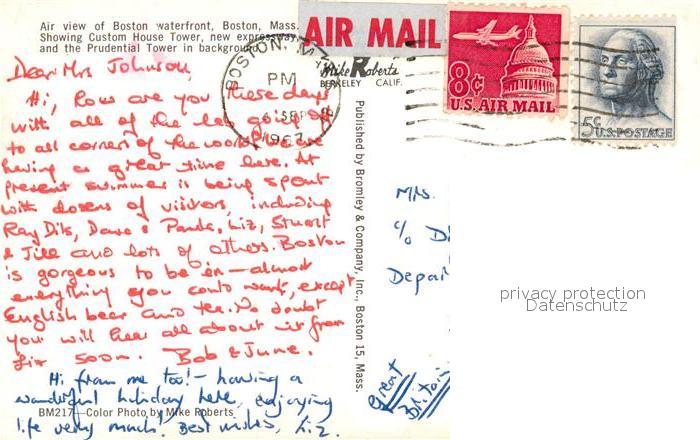 Air view of Boston waterfront, Boston, Mass.
Showing Custom House Tower, new expressway
and the Prudential Tower in background.
AIR MAIL
BOSTON, M
PM
SEP
1967
Mike Roberts
BERKELEY CALIF.
8¢
U.S. AIR MAIL
5¢ U.S. POSTAGE
Dear Mrs Johnson,
Hi, how are you these days
with all of the lab going off
to all corners of the world? We are
having a great time here. At
present summer is being spent
with dozens of visitors, including
Ray Dils, Dave & Paula, Liz, Stuart
& Jill and lots of others. Boston
is gorgeous to be in - almost
everything you could want, except
English beer and tea. No doubt
you will hear all about it from
Liz soon. Bob & June.
Hi from me too! - having a
wonderful holiday here, enjoying
life very much! Best wishes, Liz.
BM217—Color Photo by Mike Roberts
Published by Bromley & Company, Inc., Boston 15, Mass.
Mrs.
c/o D
Depar
Great
Britain
privacy protection
Datenschutz